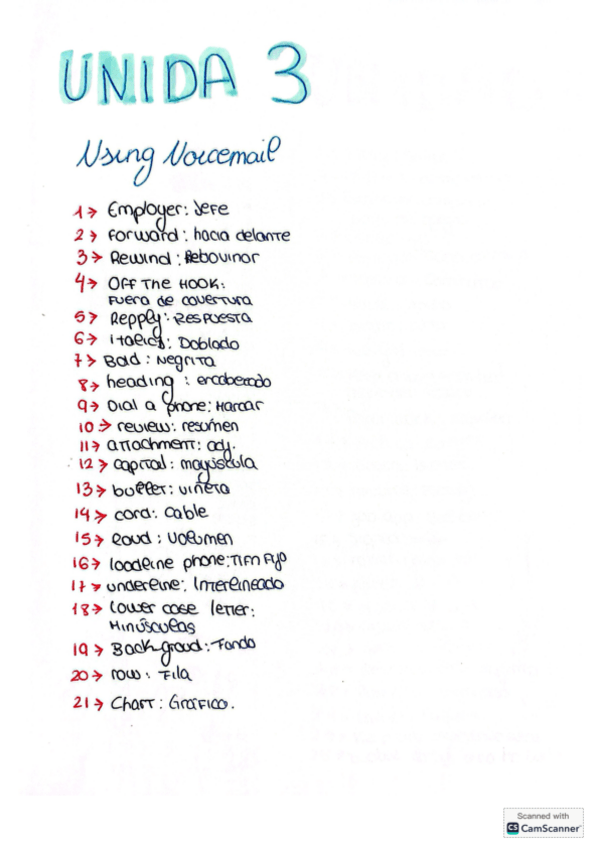 UNIDA 3
Using Voicemail
1→ Employer: Jefe
2→ Forward: hacia delante
3→ Rewind: Rebovinar
4→ OFF THE HOOK:
Fuera de covertura
5→ Repply: RESPUESTA
6→ italics: Doblado
7→ Bold: Negrita
8→ heading: encabezado
9→ Dial a phone: Marcar
10→ review: resumen
11→ attachment: adj.
12→ capital: mayúscula
13→ bullet: viñeta
14→ cord: cable
15→ Loud: Volumen
16→ landline phone: TlFn Fijo
17→ underline: Interlineado
18→ Lower case letter:
Minúsculas
19→ Backgroud: Fondo
20→ row: Fila
21→ Chart: Gráfico.
Scanned with
CS CamScanner